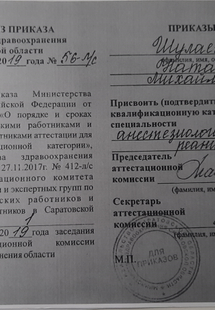 ИЗ ПРИКАЗА
здравоохранения
ой области
2019 года № 56-л/с
приказа Министерства
йской Федерации от
«О порядке и сроках
кими работниками и
тниками аттестации для
ционной категории»,
ва здравоохранения
27.11.2017г. № 412-л/с
ационного комитета
и и экспертных групп по
еских работников и
ников в Саратовской
1
2019 года заседания
ционной комиссии
нения области
ПРИКАЗЫ
(фамилия, имя, о
Михайл
Присвоить (подтвердит
квалификационную катег
специальности
анестезиолог
Председатель
аттестационной
комиссии
(фамилия, имя
Секретарь
аттестационной
комиссии
(фамилия, имя
М.П.
ДЛЯ
ПРИКАЗОВ